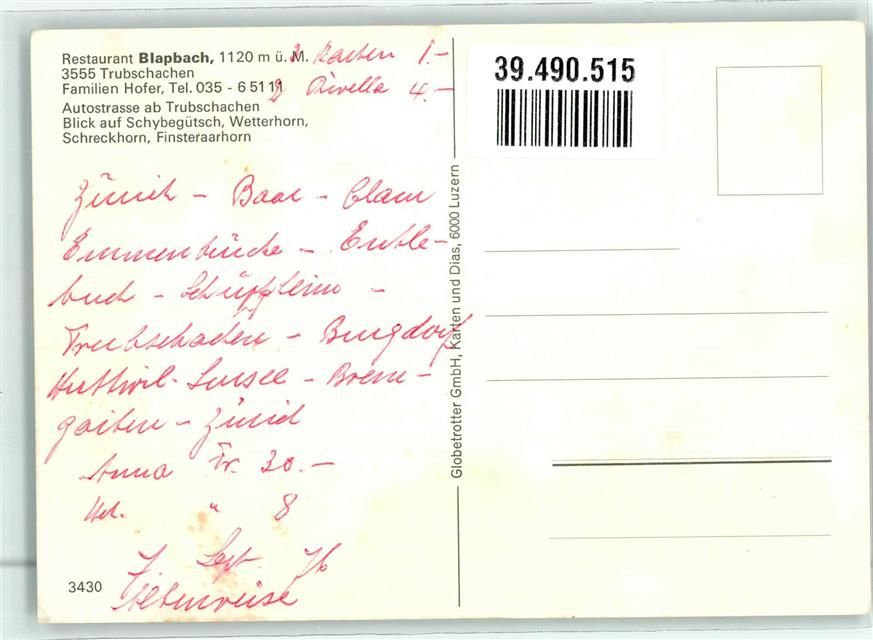 Restaurant Blapbach, 1120 m ü. M.
3555 Trubschachen
Familien Hofer, Tel. 035 - 6 51 11
Autostrasse ab Trubschachen
Blick auf Schybegütsch, Wetterhorn,
Schreckhorn, Finsteraarhorn
2 Karten 1.-
2 Rivella 4.-
Zürich - Baar - Cham
Emmenbrücke - Entle-
buch - Schüpfheim -
Trubschachen - Burgdorf
Huttwil - Sursee - Brem-
garten - Zürich
Anna Fr. 30.-
" 8
7. Sept. 76
3430
Globetrotter GmbH, Karten und Dias, 6000 Luzern
39.490.515